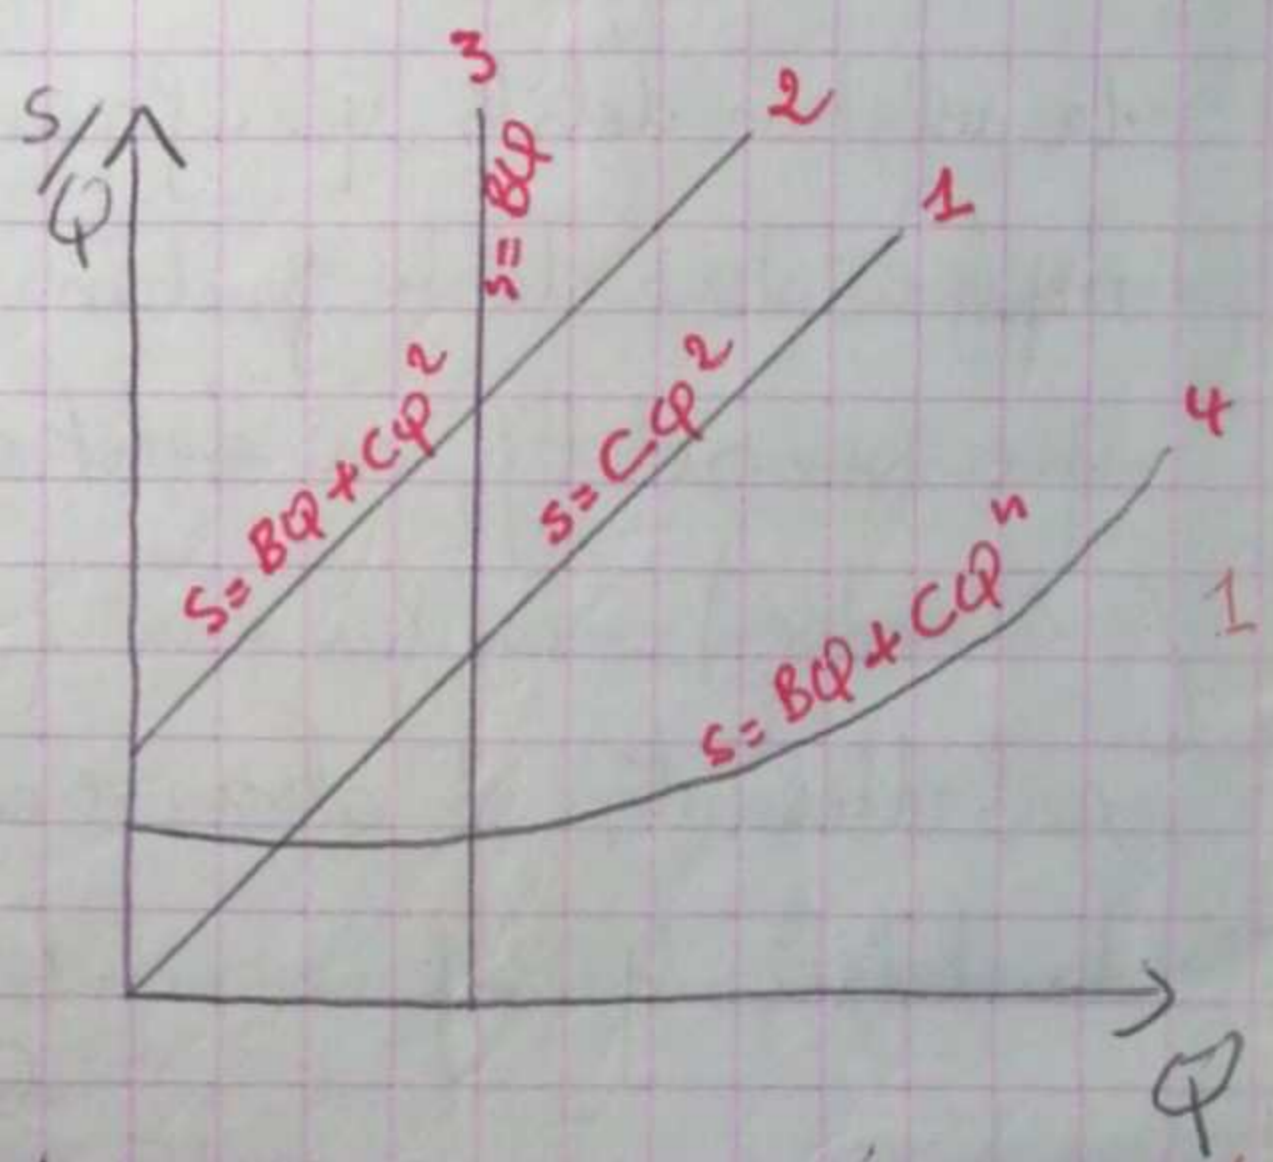 3
2
S/Q
s = BQ
1
S = BQ + CQ²
s = CQ²
4
s = BQ + CQⁿ
1
Q